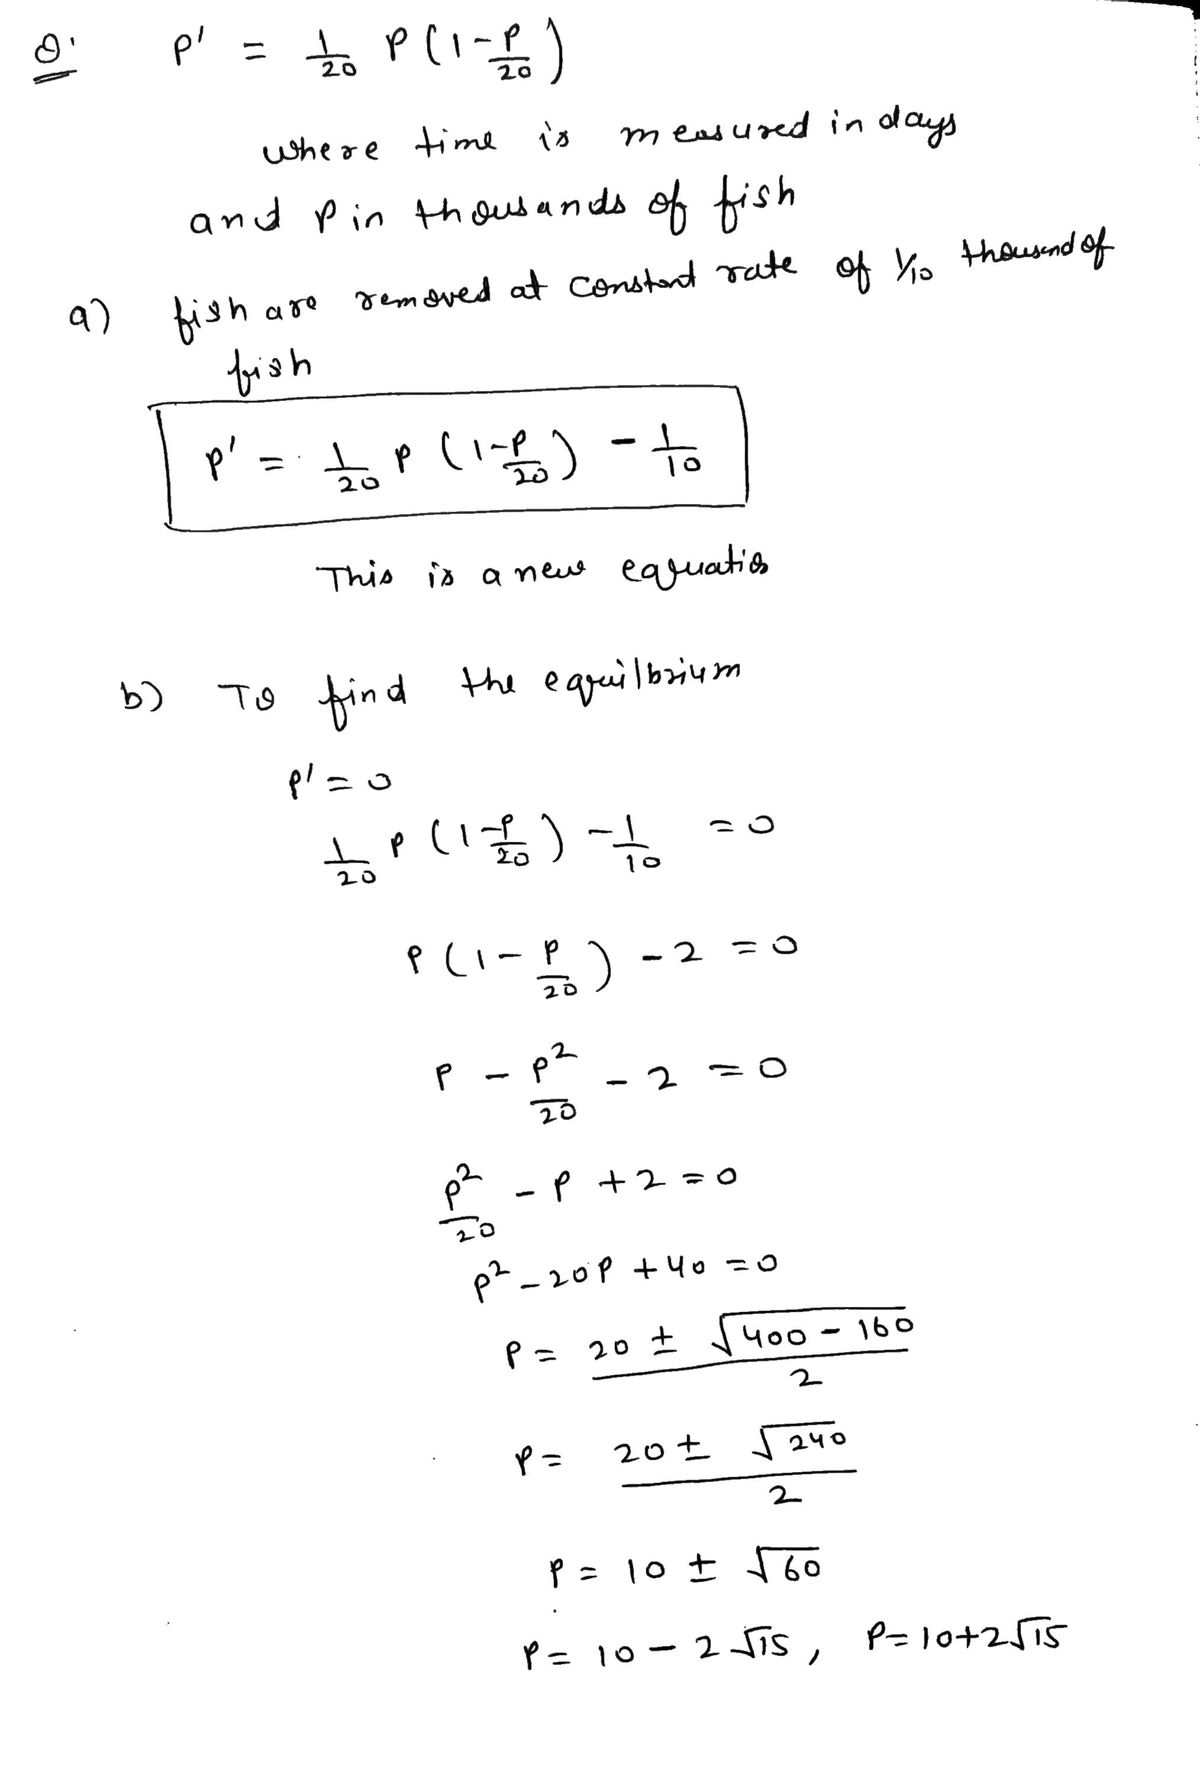 Q. P' = 1/20 P (1 - P/20)
where time is measured in days
and P in thousands of fish
a) fish are removed at constant rate of 1/10 thousand of
fish
P' = 1/20 P (1 - P/20) - 1/10
This is a new equation
b) To find the equilbrium
P' = 0
1/20 P (1 - P/20) - 1/10 = 0
P (1 - P/20) - 2 = 0
P - P²/20 - 2 = 0
P²/20 - P + 2 = 0
P² - 20P + 40 = 0
P = (20 ± √(400 - 160))/2
P = (20 ± √240)/2
P = 10 ± √60
P = 10 - 2√15, P = 10 + 2√15